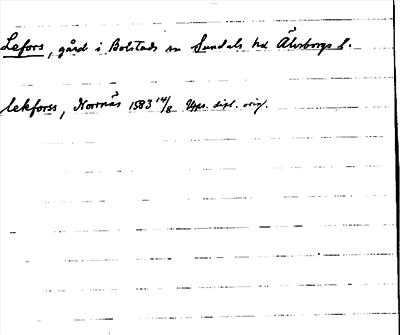 Lefors, gård i Bolstads sn Sundals hd Älvsborgs l.
lekforss, Norrnäs 1583 14/8 Upps. dipl. orig.